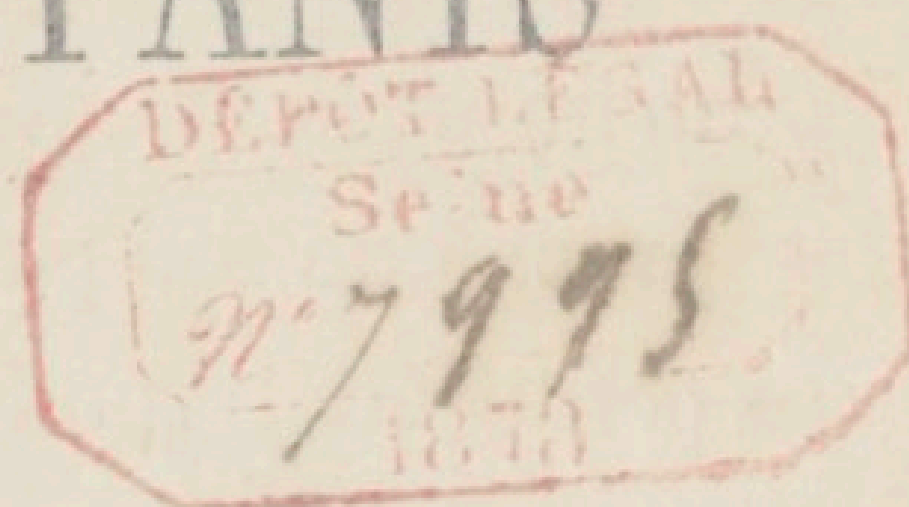 DÉPÔT LÉGAL
Seine
N° 7995